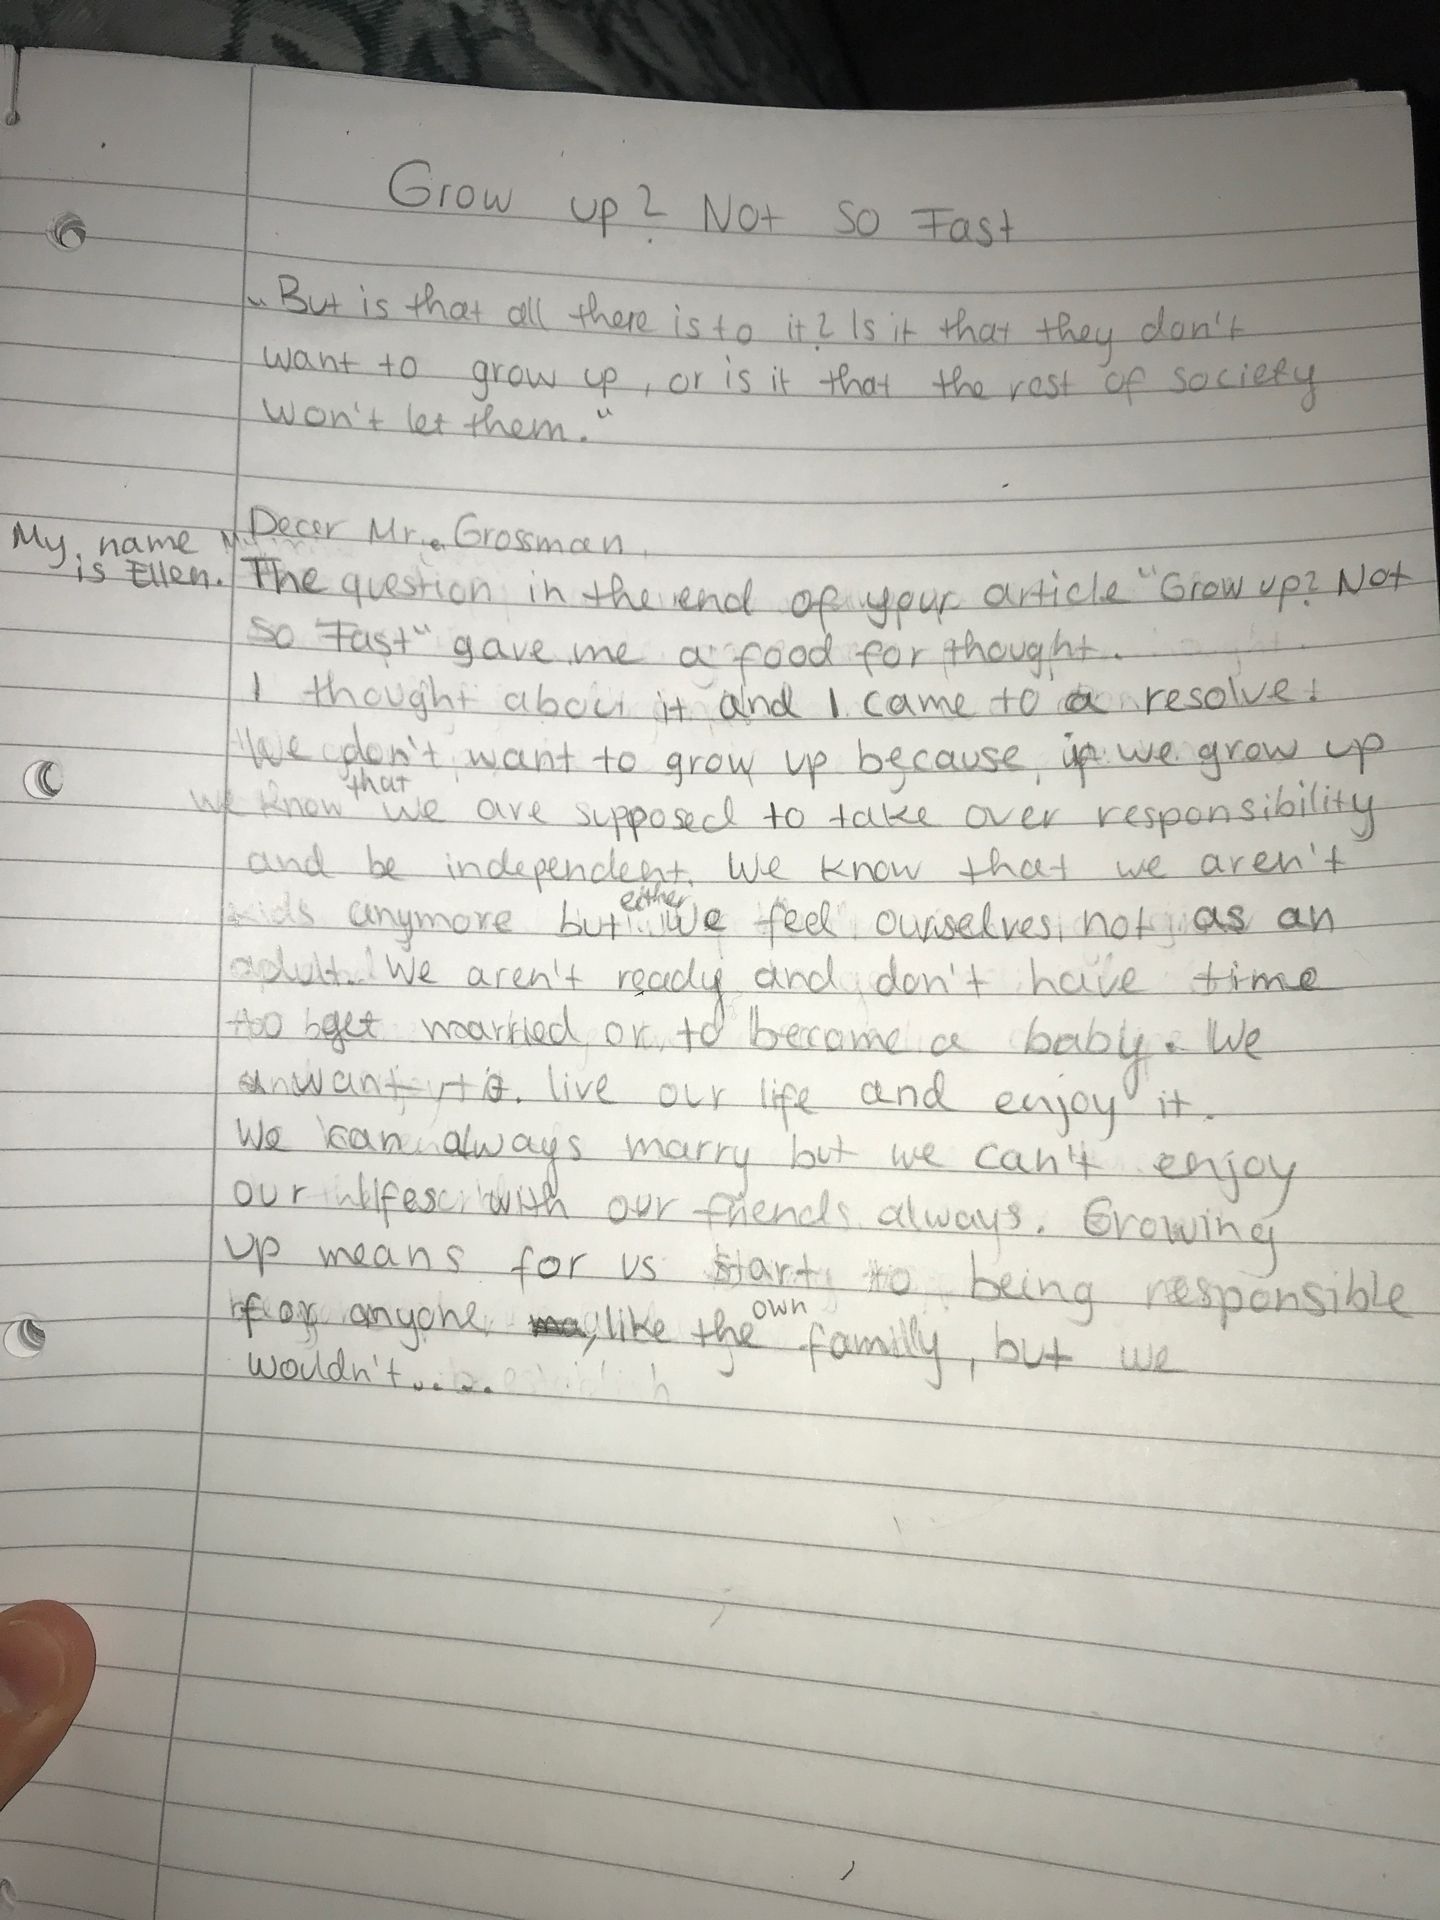 Grow up? Not so Fast
„But is that all there is to it? Is it that they don't
want to grow up, or is it that the rest of society
won't let them."
Dear Mr. Grossman,
My name
is Ellen.
The question in the end of your article "Grow up? Not
so Fast" gave me a food for thought.
I thought about it and I came to a resolve:
We don't want to grow up because, if we grow up
that
we know we are supposed to take over responsibility
and be independent. We know that we aren't
either
kids anymore but we feel ourselves not as an
adult. We aren't ready and don't have time
to get married or to become a baby. We
want to live our life and enjoy it.
We can always marry but we can't enjoy
our lifes with our friends always. Growing
up means for us start to being responsible
own
for anyone, like the familly, but we
wouldn't....